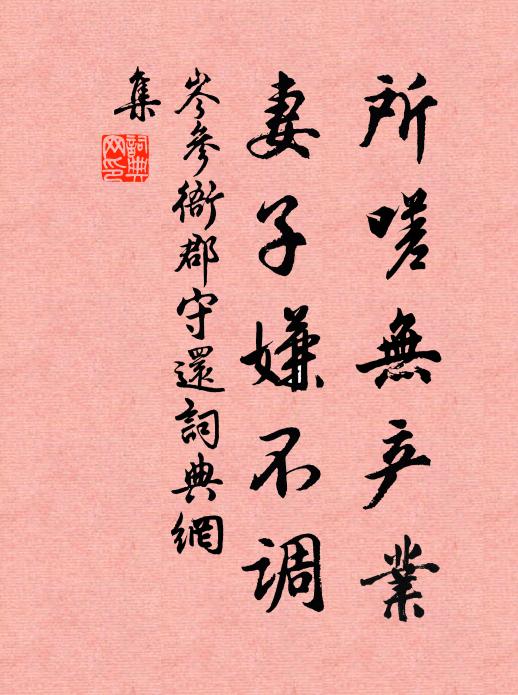 所嗟無产業
妻子嫌不調
岑參衙郡守還詞典網
集
詞典
网印